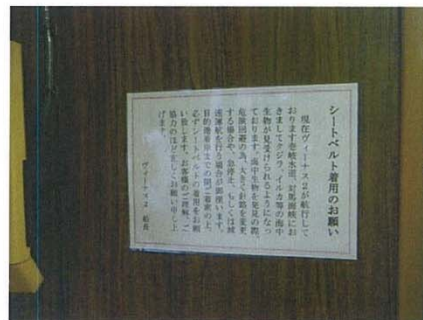 シートベルト着用のお願い
現在ヴィーナス2が航行して
おります壱岐水道、対馬海峡にお
きましてクジラ、イルカ等の海中
生物が見受けられるようになっ
ております。海中生物を発見の際、
危険回避の為、大きく針路を変更
する場合や、急停止、もしくは減
速運航を行う場合が御座います。
目的港着岸までの間ご着席の上、
必ずシートベルトの着用をお願
い致します。お客様のご理解、ご
協力のほど宜しくお願い申し上
げます。
ヴィーナス2 船長